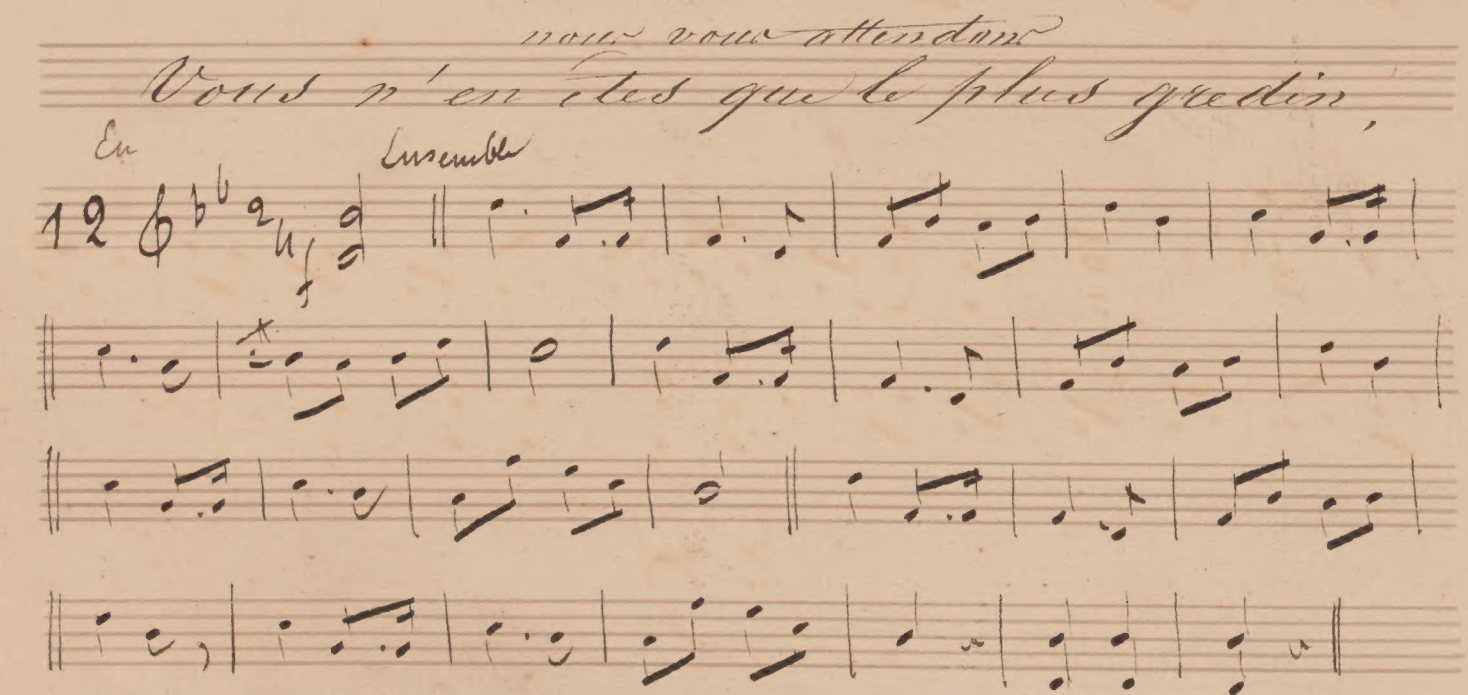 nous vous attendons
Vous n'en êtes que le plus gredin,
En Ensemble
12 2 4 f